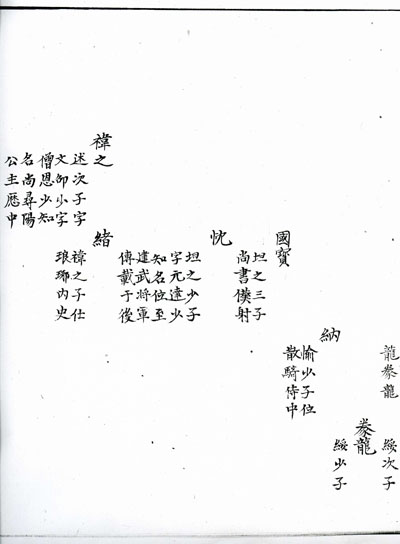 龍豢龍
綏次子
豢龍
綏少子
納
愉少子位
散騎侍中
國寶
坦之三子
尚書僕射
忱
坦之少子
字元達少
知名位至
建武將軍
傳載于後
禕之
述次子字
文卲少字
僧恩少知
名尚尋陽
公主歷中
緒
禕之子仕
琅琊内史